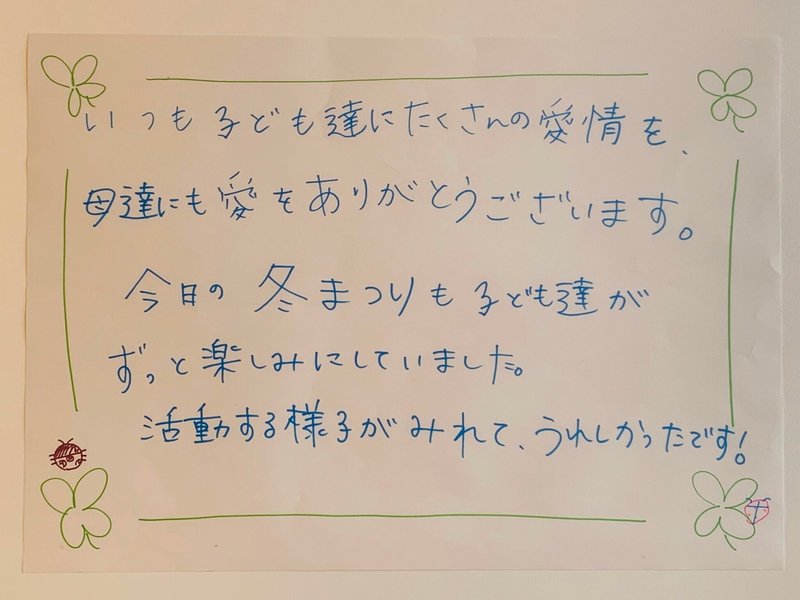 いつも子ども達にたくさんの愛情を、
母達にも愛をありがとうございます。
今日の冬まつりも子ども達が
ずっと楽しみにしていました。
活動する様子がみれて、うれしかったです!